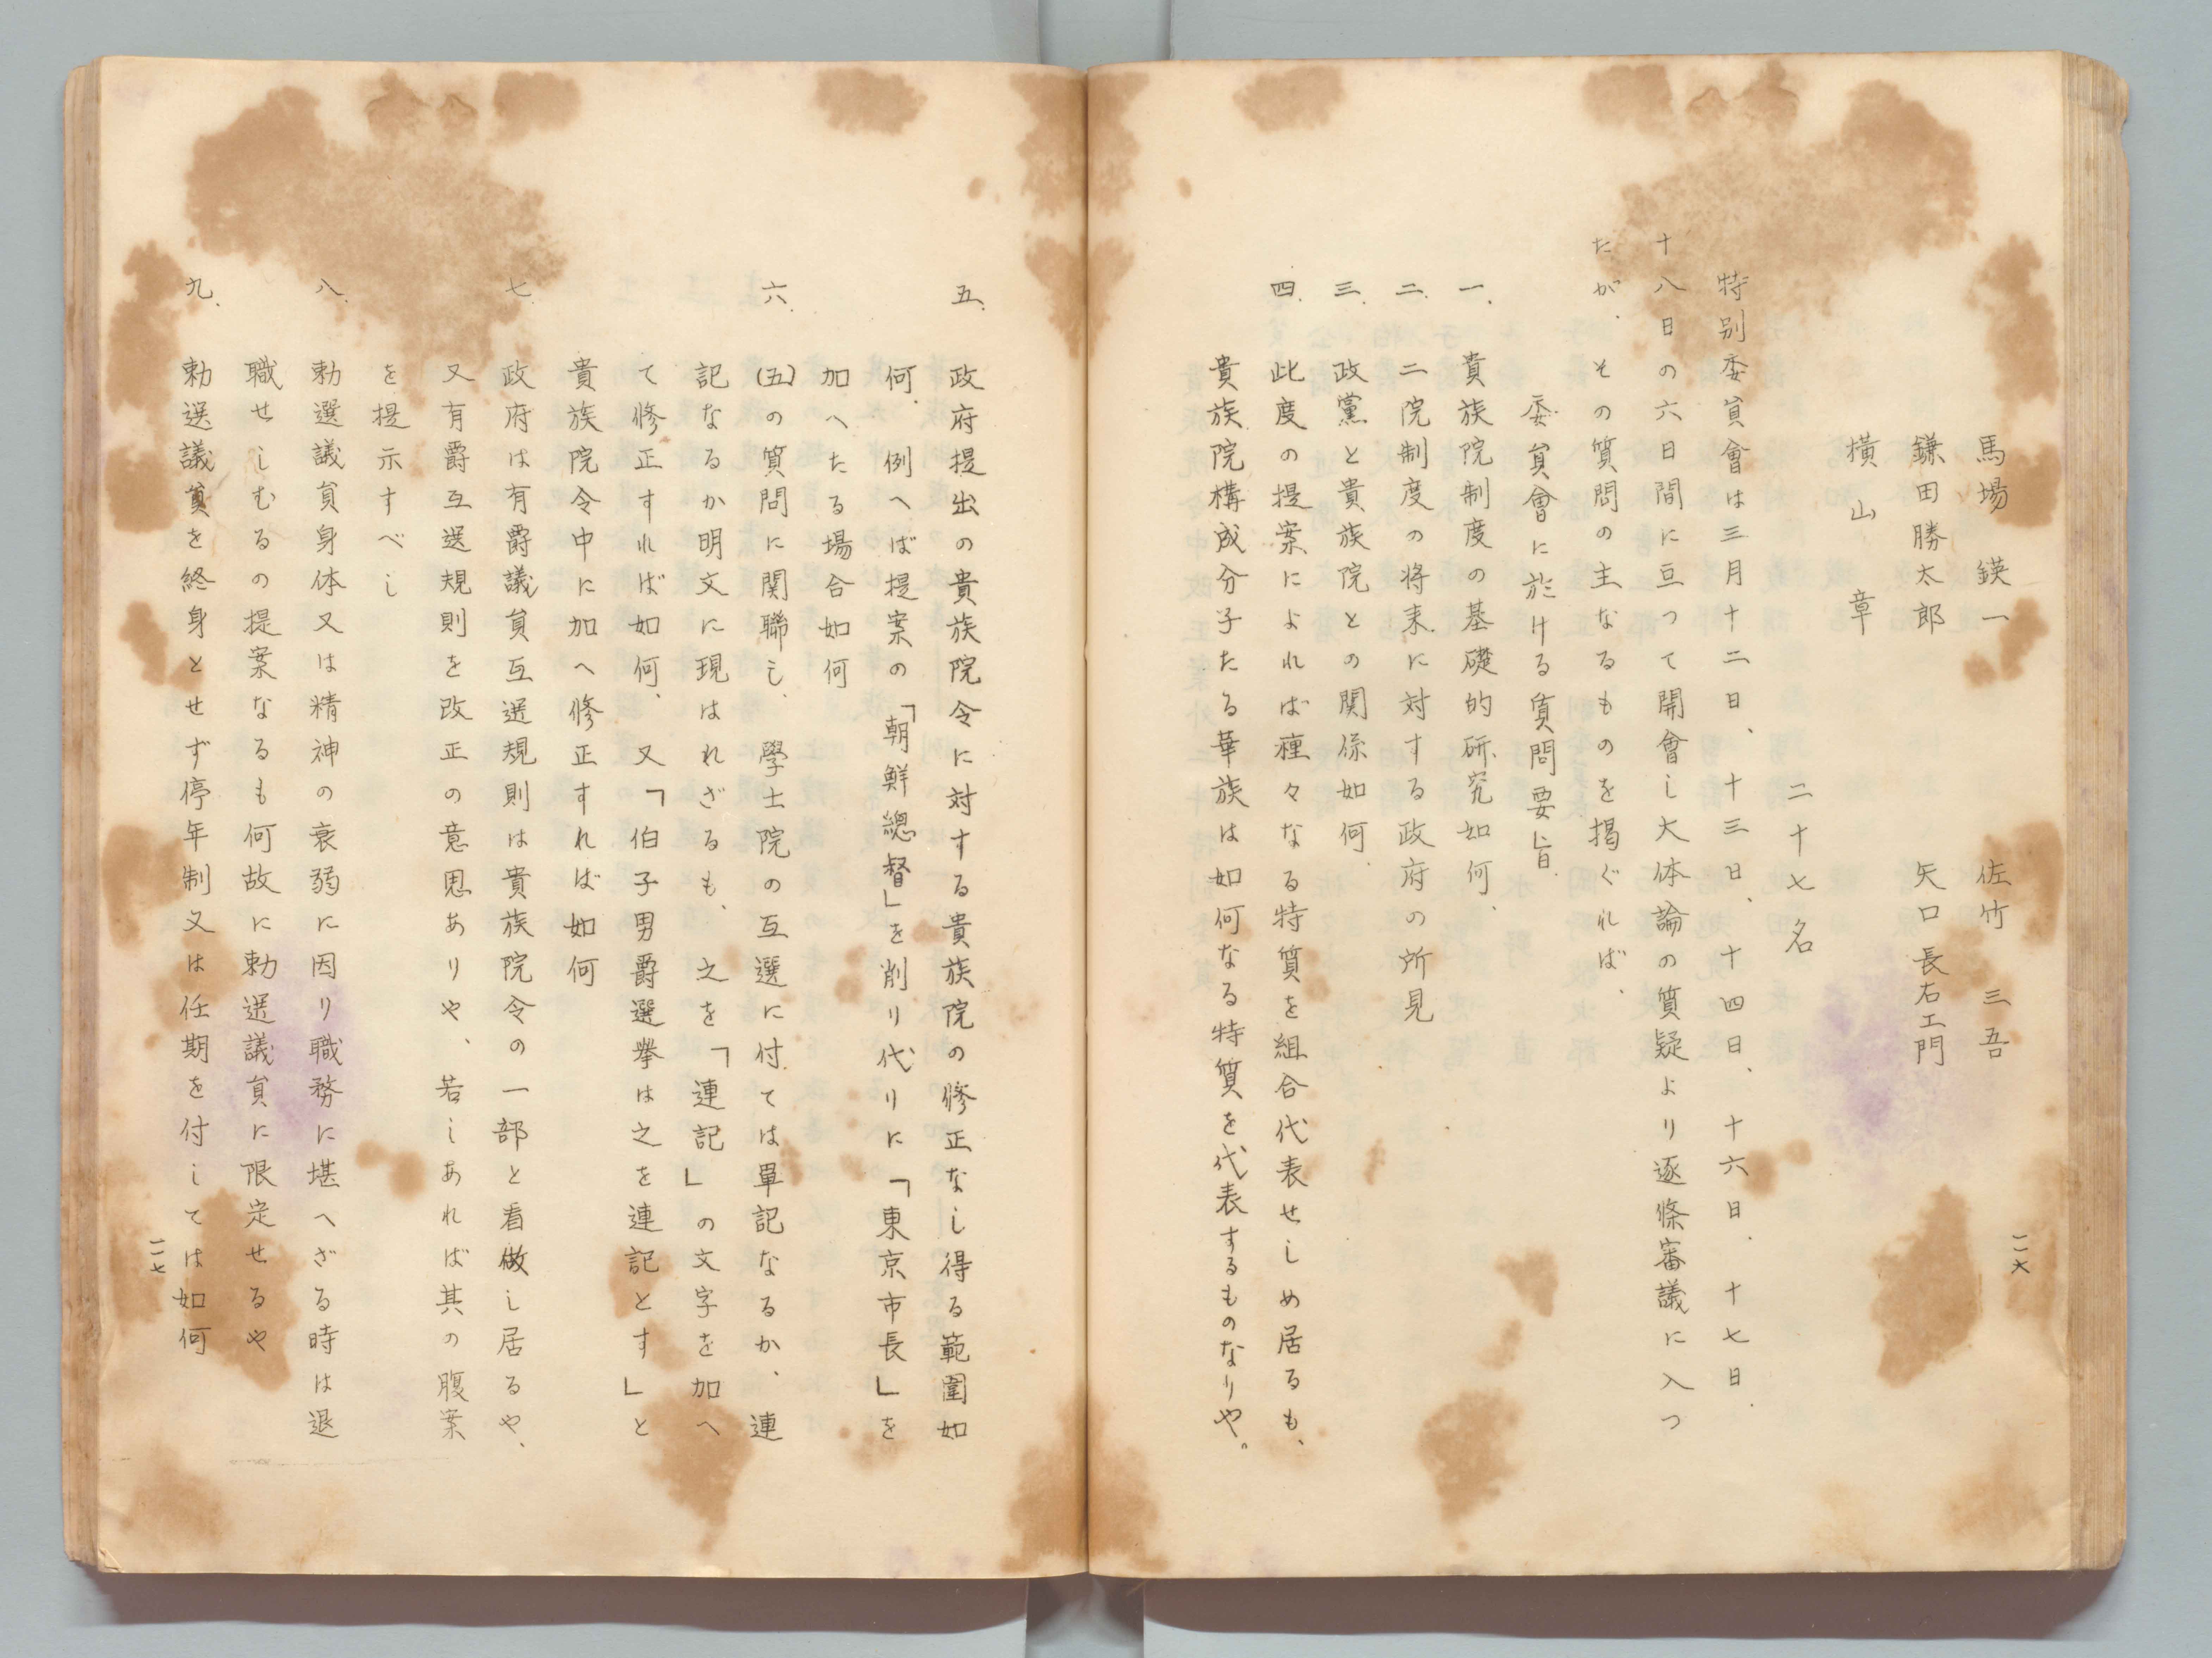 馬場　鍈一　佐竹　三吾
鎌田勝太郎　矢口長右エ門
横山　章
二十七名
特別委員會は三月十二日、十三日、十四日、十六日、十七日、
十八日の六日間に亘つて開會し大体論の質疑より逐條審議に入つ
たが、その質問の主なるものを掲ぐれば、
委員會に於ける質問要旨
一、貴族院制度の基礎的研究如何、
二、二院制度の将来に対する政府の所見
三、政黨と貴族院との関係如何、
四、此度の提案によれば種々なる特質を組合代表せしめ居るも、
貴族院構成分子たる華族は如何なる特質を代表するものなりや。
一一六
五、政府提出の貴族院令に対する貴族院の修正なし得る範圍如
何、例へば提案の「朝鮮總督」を削り代りに「東京市長」を
加へたる場合如何
六、(五)の質問に関聯し、學士院の互選に付ては單記なるか、連
記なるか明文に現はれざるも、之を「連記」の文字を加へ
て修正すれば如何、又「伯子男爵選挙は之を連記とす」と
貴族院令中に加へ修正すれば如何
七、政府は有爵議員互選規則は貴族院令の一部と看做し居るや、
又有爵互選規則を改正の意思ありや、若しあれば其の腹案
を提示すべし
八、勅選議員身体又は精神の衰弱に因り職務に堪へざる時は退
職せしむるの提案なるも何故に勅選議員に限定せるや
九、勅選議員を終身とせず停年制又は任期を付しては如何
一一七